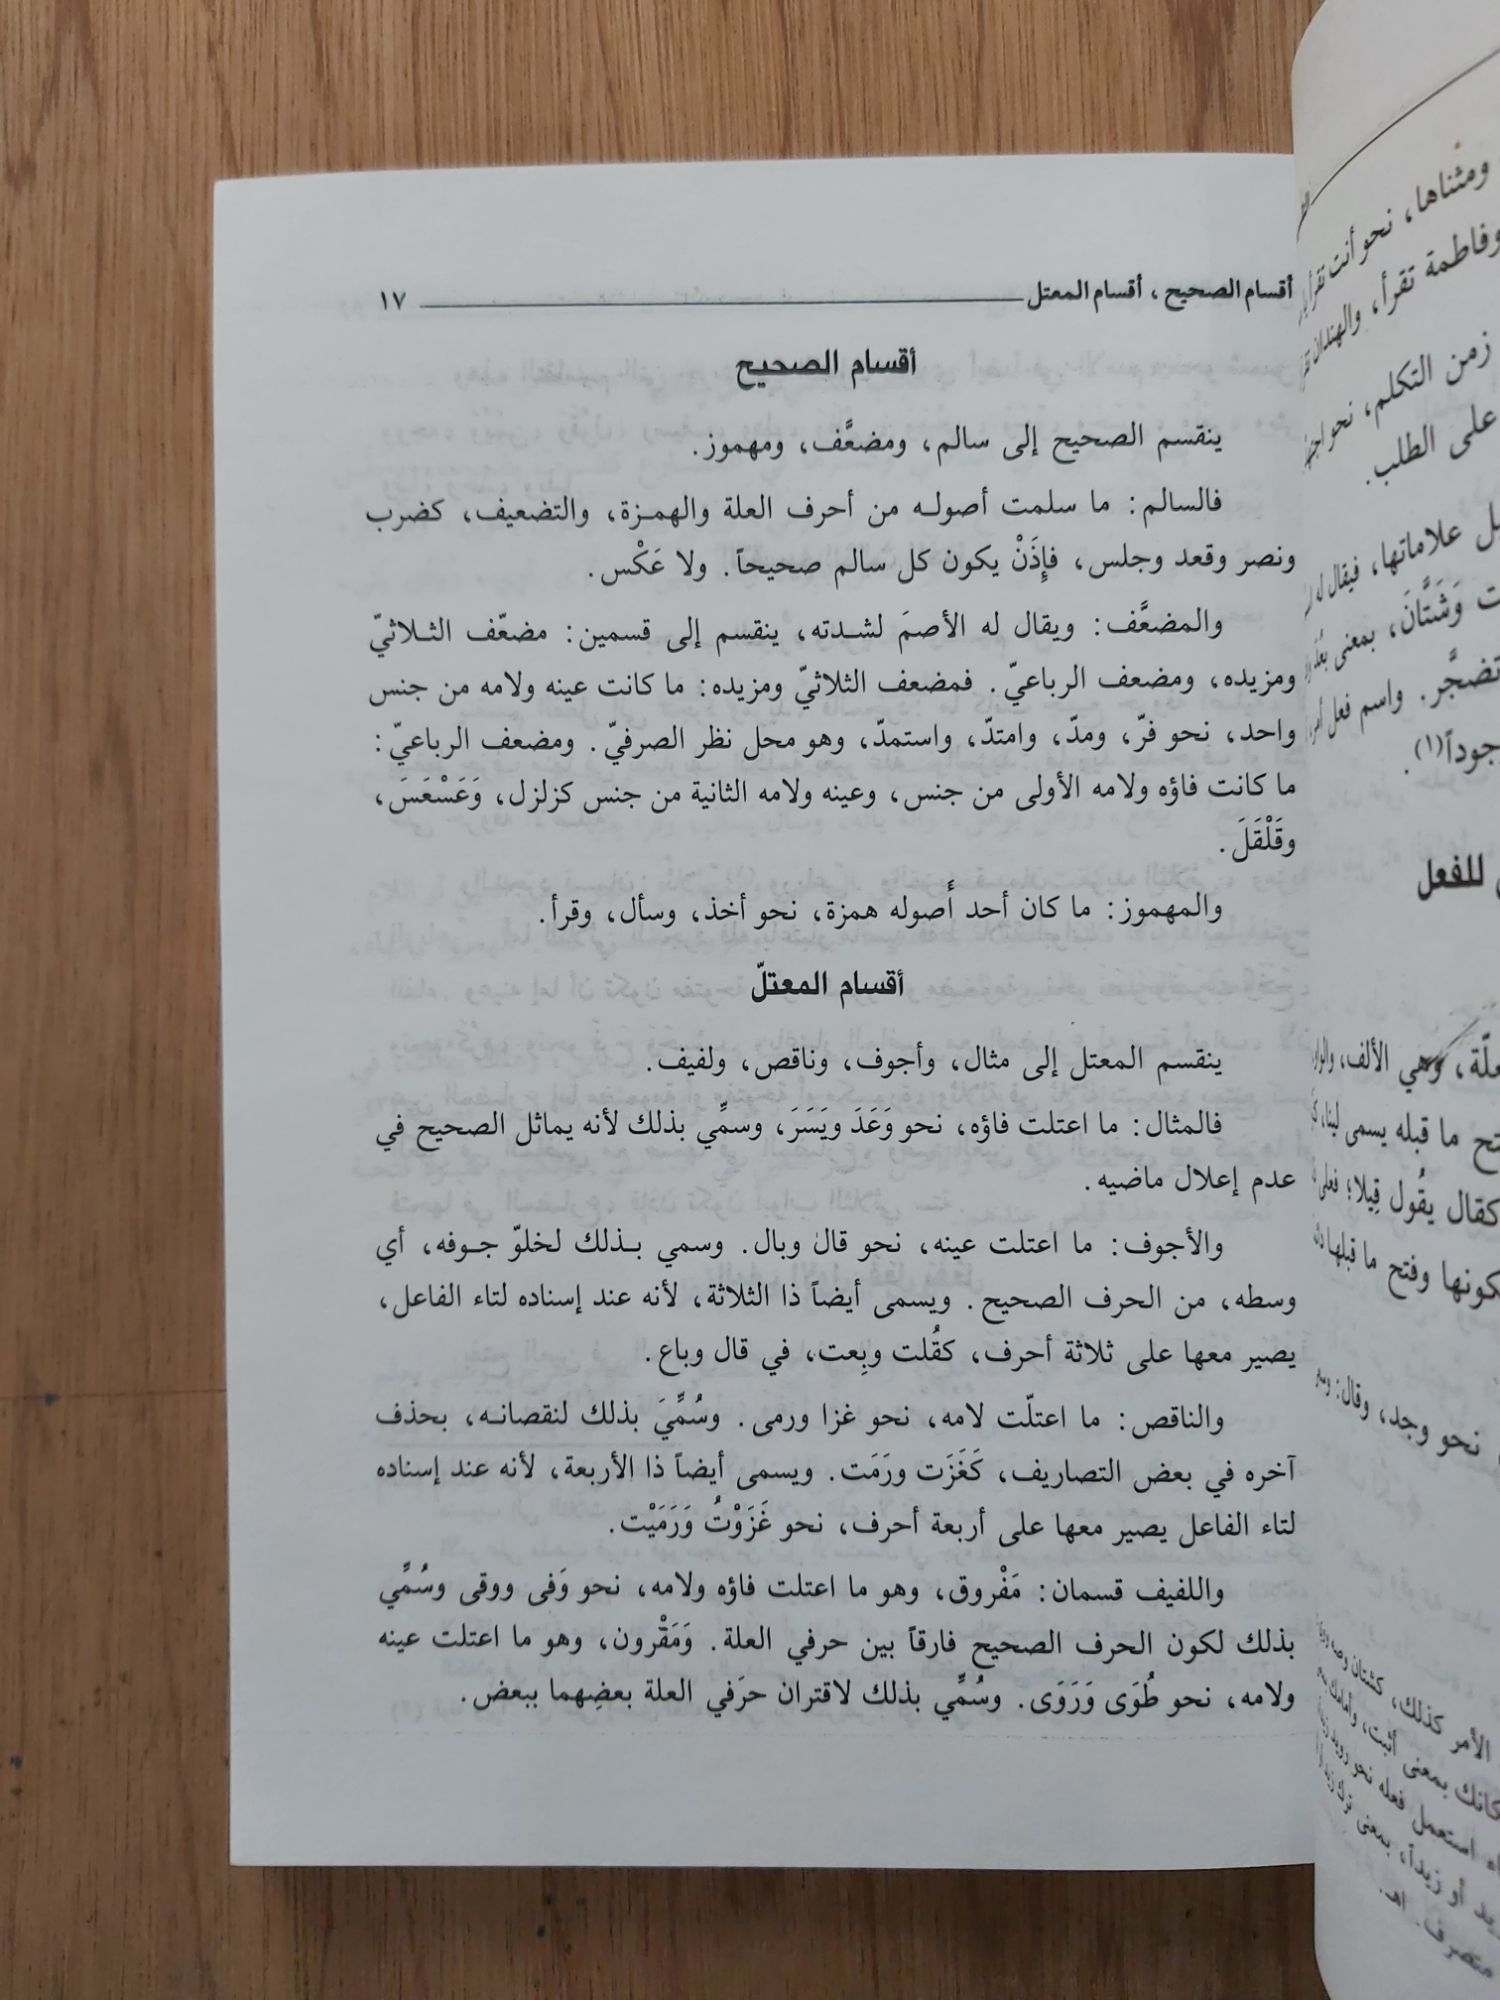 أقسام الصحيح ، أقسام المعتل ١٧
أقسام الصحيح
ينقسم الصحيح إلى سالم، ومضعَّف، ومهموز.
فالسالم: ما سلمت أصولـه من أحرف العلة والهمـزة، والتضعيف، كضرب
ونصر وقعد وجلس، فإِذَنْ يكون كل سالم صحيحاً. ولا عَكْس.
والمضعَّف: ويقال له الأصمَ لشـدته، ينقسم إلى قسمين: مضعّف الثـلاثيّ
ومزيده، ومضعف الرباعيّ. فمضعف الثلاثيّ ومزيده: ما كانت عينه ولامه من جنس
واحد، نحو فرّ، ومدّ، وامتدّ، واستمدّ، وهو محل نظر الصرفيّ. ومضعف الرباعيّ:
ما كانت فاؤه ولامه الأولى من جنس، وعينه ولامه الثانية من جنس كزلزل، وَعَسْعَسَ،
وقَلْقَلَ.
والمهموز: ما كان أحد أَصوله همزة، نحو أخذ، وسأل، وقرأ.
أقسام المعتلّ
ينقسم المعتل إلى مثال، وأجوف، وناقص، ولفيف.
فالمثال: ما اعتلت فاؤه، نحو وَعَدَ ويَسَرَ، وسمِّي بذلك لأنه يماثل الصحيح في
عدم إعلال ماضيه.
والأجوف: ما اعتلت عينه، نحو قال وبال. وسمي بـذلك لخلوّ جـوفه، أي
وسطه، من الحرف الصحيح. ويسمى أيضاً ذا الثلاثة، لأنه عند إسناده لتاء الفاعل،
يصير معها على ثلاثة أحرف، كقُلت وبِعت، في قال وباع.
والناقص: ما اعتلّت لامه، نحو غزا ورمى. وسُمِّيَ بذلك لنقصانـه، بحذف
آخره في بعض التصاريف، كَغَزَت ورَمَت. ويسمى أيضاً ذا الأربعة، لأنه عند إسناده
لتاء الفاعل يصير معها على أربعة أحرف، نحو غَزَوْتُ وَرَمَيْت.
واللفيف قسمان: مَفْروق، وهو ما اعتلت فاؤه ولامه، نحو وَفى ووقى وسُمِّي
بذلك لكون الحرف الصحيح فارقاً بين حرفي العلة. وَمَقْرون، وهو ما اعتلت عينه
ولامه، نحو طُوَى وَرَوَى. وسُمِّي بذلك لاقتران حرَفي العلة بعضِهما ببعض.
ومثناها، نحو أنت
وفاطمة تقرأ، والهندان
زمن التكلم، نحو
على الطلب.
علاماتها، فيقال له
وَشَتَّانَ، بمعنى
تضجَّر. واسم فعل
(١).
للفعل
وهي الألف،
ما قبله يسمى
كقال يقُول قِيلا؛
وفتح ما قبلها
نحو وجد، وقال:
الأمر كذلك، كشتان
بمعنى أثبت،
استعمل فعله نحو
أو زيداً، بمعنى
اهـ.